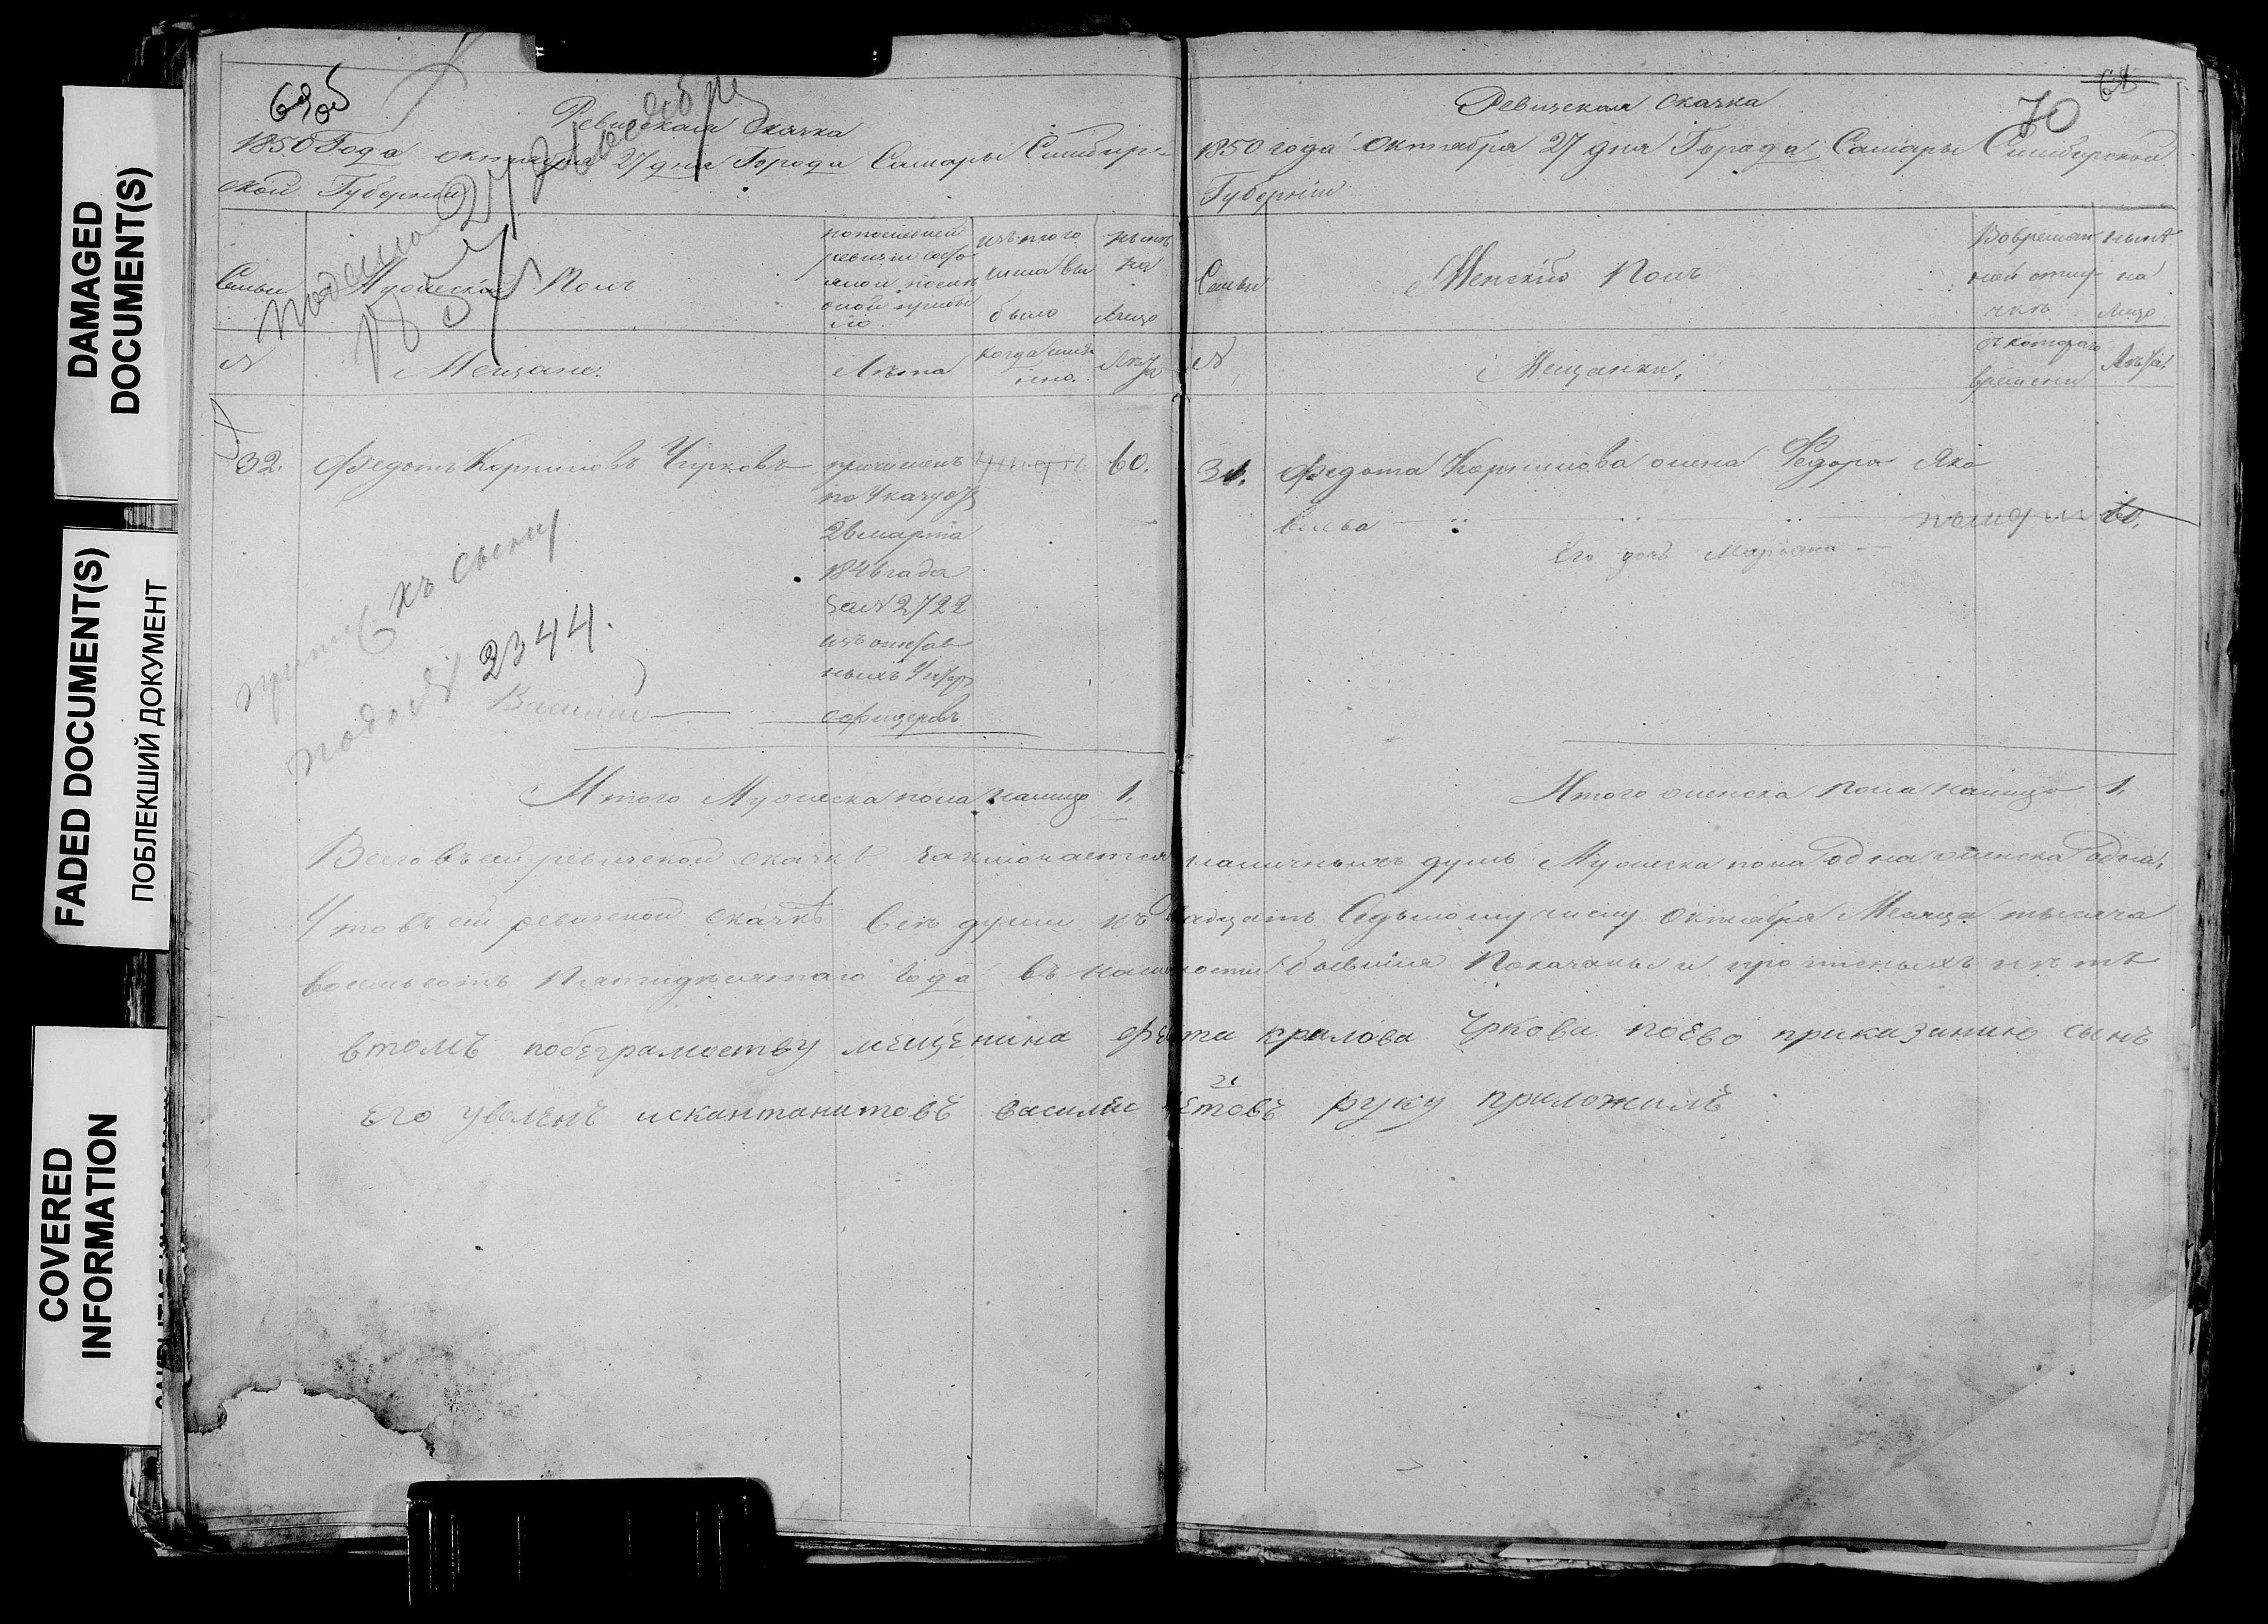 DAMAGED
DOCUMENT(S)
FADED DOCUMENT(S)
ПОБЛЕКШИЙ ДОКУМЕНТ
COVERED
INFORMATION
69об
Ревизская Сказка
1850 Года октября 27 дня Города Самары Симбир-
ской Губернии
Семьи
Мужеский Полъ
изъ того
числа вы
было
нынѣ
на
лицо
№
Мещане.
Лѣта
когда имян
но.
Лѣта
32. Федотъ Корниловъ Чирковъ
причисленъ 60.
по Указу
26 марта
1846 года
за № 2722
изъ отстав
ныхъ Унтер
офицеровъ
къ сыну
подъ № 2344.
Василий
Итого Мужеска пола налицо 1.
70
Ревизская Сказка
1850 года октября 27 дня Города Самары Симбирской
Губернии
Семьи
Женский Полъ
Во времен
ной отлу-
чкѣ
нынѣ
на
лицо
№
Мещанки.
съ котораго
времени
Лѣта
31. Федота Корнилова жена Федора Яко
влева 60.
его дочь Марьяна
Итого женска пола налицо 1.
Всего въ сей ревизской сказкѣ заключается наличныхъ душъ Мужеска пола одна женска одна,
Что въ сей ревизской сказкѣ всѣ души къ двадцать седьмому числу октября Месяца тысяча
восемьсотъ пятидесятаго года въ наличности бывшия показаны и прописныхъ нѣтъ
втомъ побеграмоству мещенина Федта крнлова Чркова поево приказанию сынъ
его уволенъ искантанитовъ василеи руку приложилъ